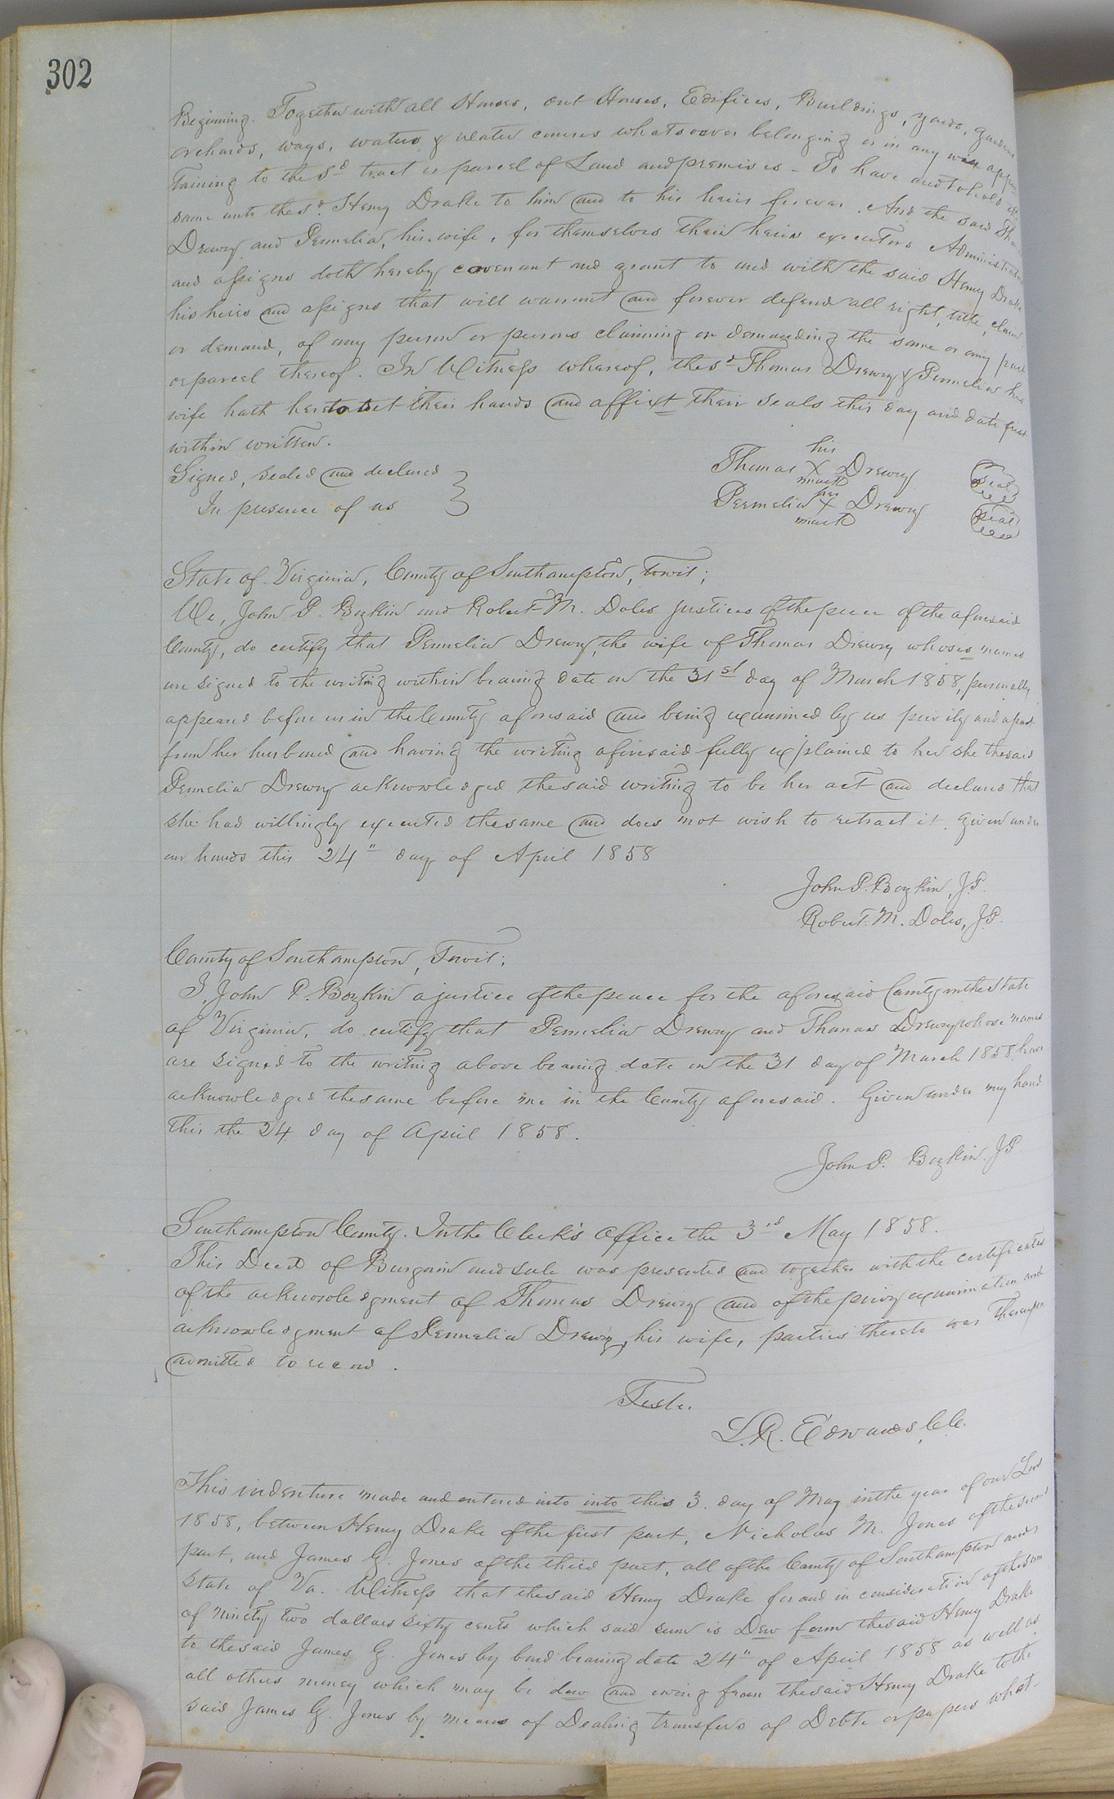 302
Beginning. Together with all Houses, out Houses, Edifices, Buildings, yards, gardens
orchards, ways, waters & water courses whatsoever belonging or in any wise apper
taining to the sd. tract or parcel of Land and premises - To have and to hold the
same unto the sd. Henry Drake to him and to his heirs forever. And the said Tho
Drewry and Permelia, his wife, for themselves their heirs executors Administrators
and assigns doth hereby covenant and grant to and with the said Henry Drake
his heirs and assigns that will warrant and forever defend all right, title, claim
or demand, of any person or persons claiming or demanding the same or any part
or parcel thereof. In Witness whereof, the sd Thomas Drewry & Permelia his
wife hath hereto set their hands and affixt their seals this day and date first
within written.
Signed, sealed and declared
In presence of us
his
Thomas X Drewry seal
mark
her
Permelia X Drewry seal
mark
State of Virginia, County of Southampton, towit;
We, John P. Boykin and Robert M. Doles justices of the peace of the aforesaid
County, do certify that Permelia Drewry, the wife of Thomas Drewry whoses names
are signed to the writing within bearing date on the 31st day of March 1858, personally
appeared before us in the County aforesaid and being examined by us privily and apart
from her husband and having the writing aforesaid fully explained to her she the said
Permelia Drewry acknowledged the said writing to be her act and declared that
she had willingly executed the same and does not wish to retract it. Given under
our hands this 24" day of April 1858
John P. Boykin, J.P.
Robert. M. Doles, J.P.
County of Southampton, Towit;
I, John P. Boykin a justice of the peace for the aforesaid County in the State
of Virginia, do certify that Permelia Drewry and Thomas Drewry whose names
are signed to the writing above bearing date on the 31 day of March 1858, have
acknowledged the same before me in the County aforesaid. Given under my hand
this the 24 day of April 1858.
John P. Boykin. J.P.
Southampton County. In the Clerk's Office the 3rd May 1858.
This Deed of Bargain and sale was presented and together with the certificates
of the acknowledgment of Thomas Drewry and of the privy examination and
acknowledgment of Permelia Drewry, his wife, parties thereto was thereupon
admitted to record.
Teste.
L.R. Edwards C.C.
This indenture made and entered into into this 3. day of May in the year of our Lord
1858, between Henry Drake of the first part, Nicholas M. Jones of the second
part, and James G. Jones of the third part, all of the County of Southampton and
State of Va. Witness that the said Henry Drake for and in consideration of the sum
of ninety two dollars sixty cents which said sum is Dew form the said Henry Drake
to the said James G. Jones by bond bearing date 24" of April 1858 as well as
all others money which may be dew and owing from the said Henry Drake to the
said James G. Jones by means of Dealing transfers of Debts or papers what-